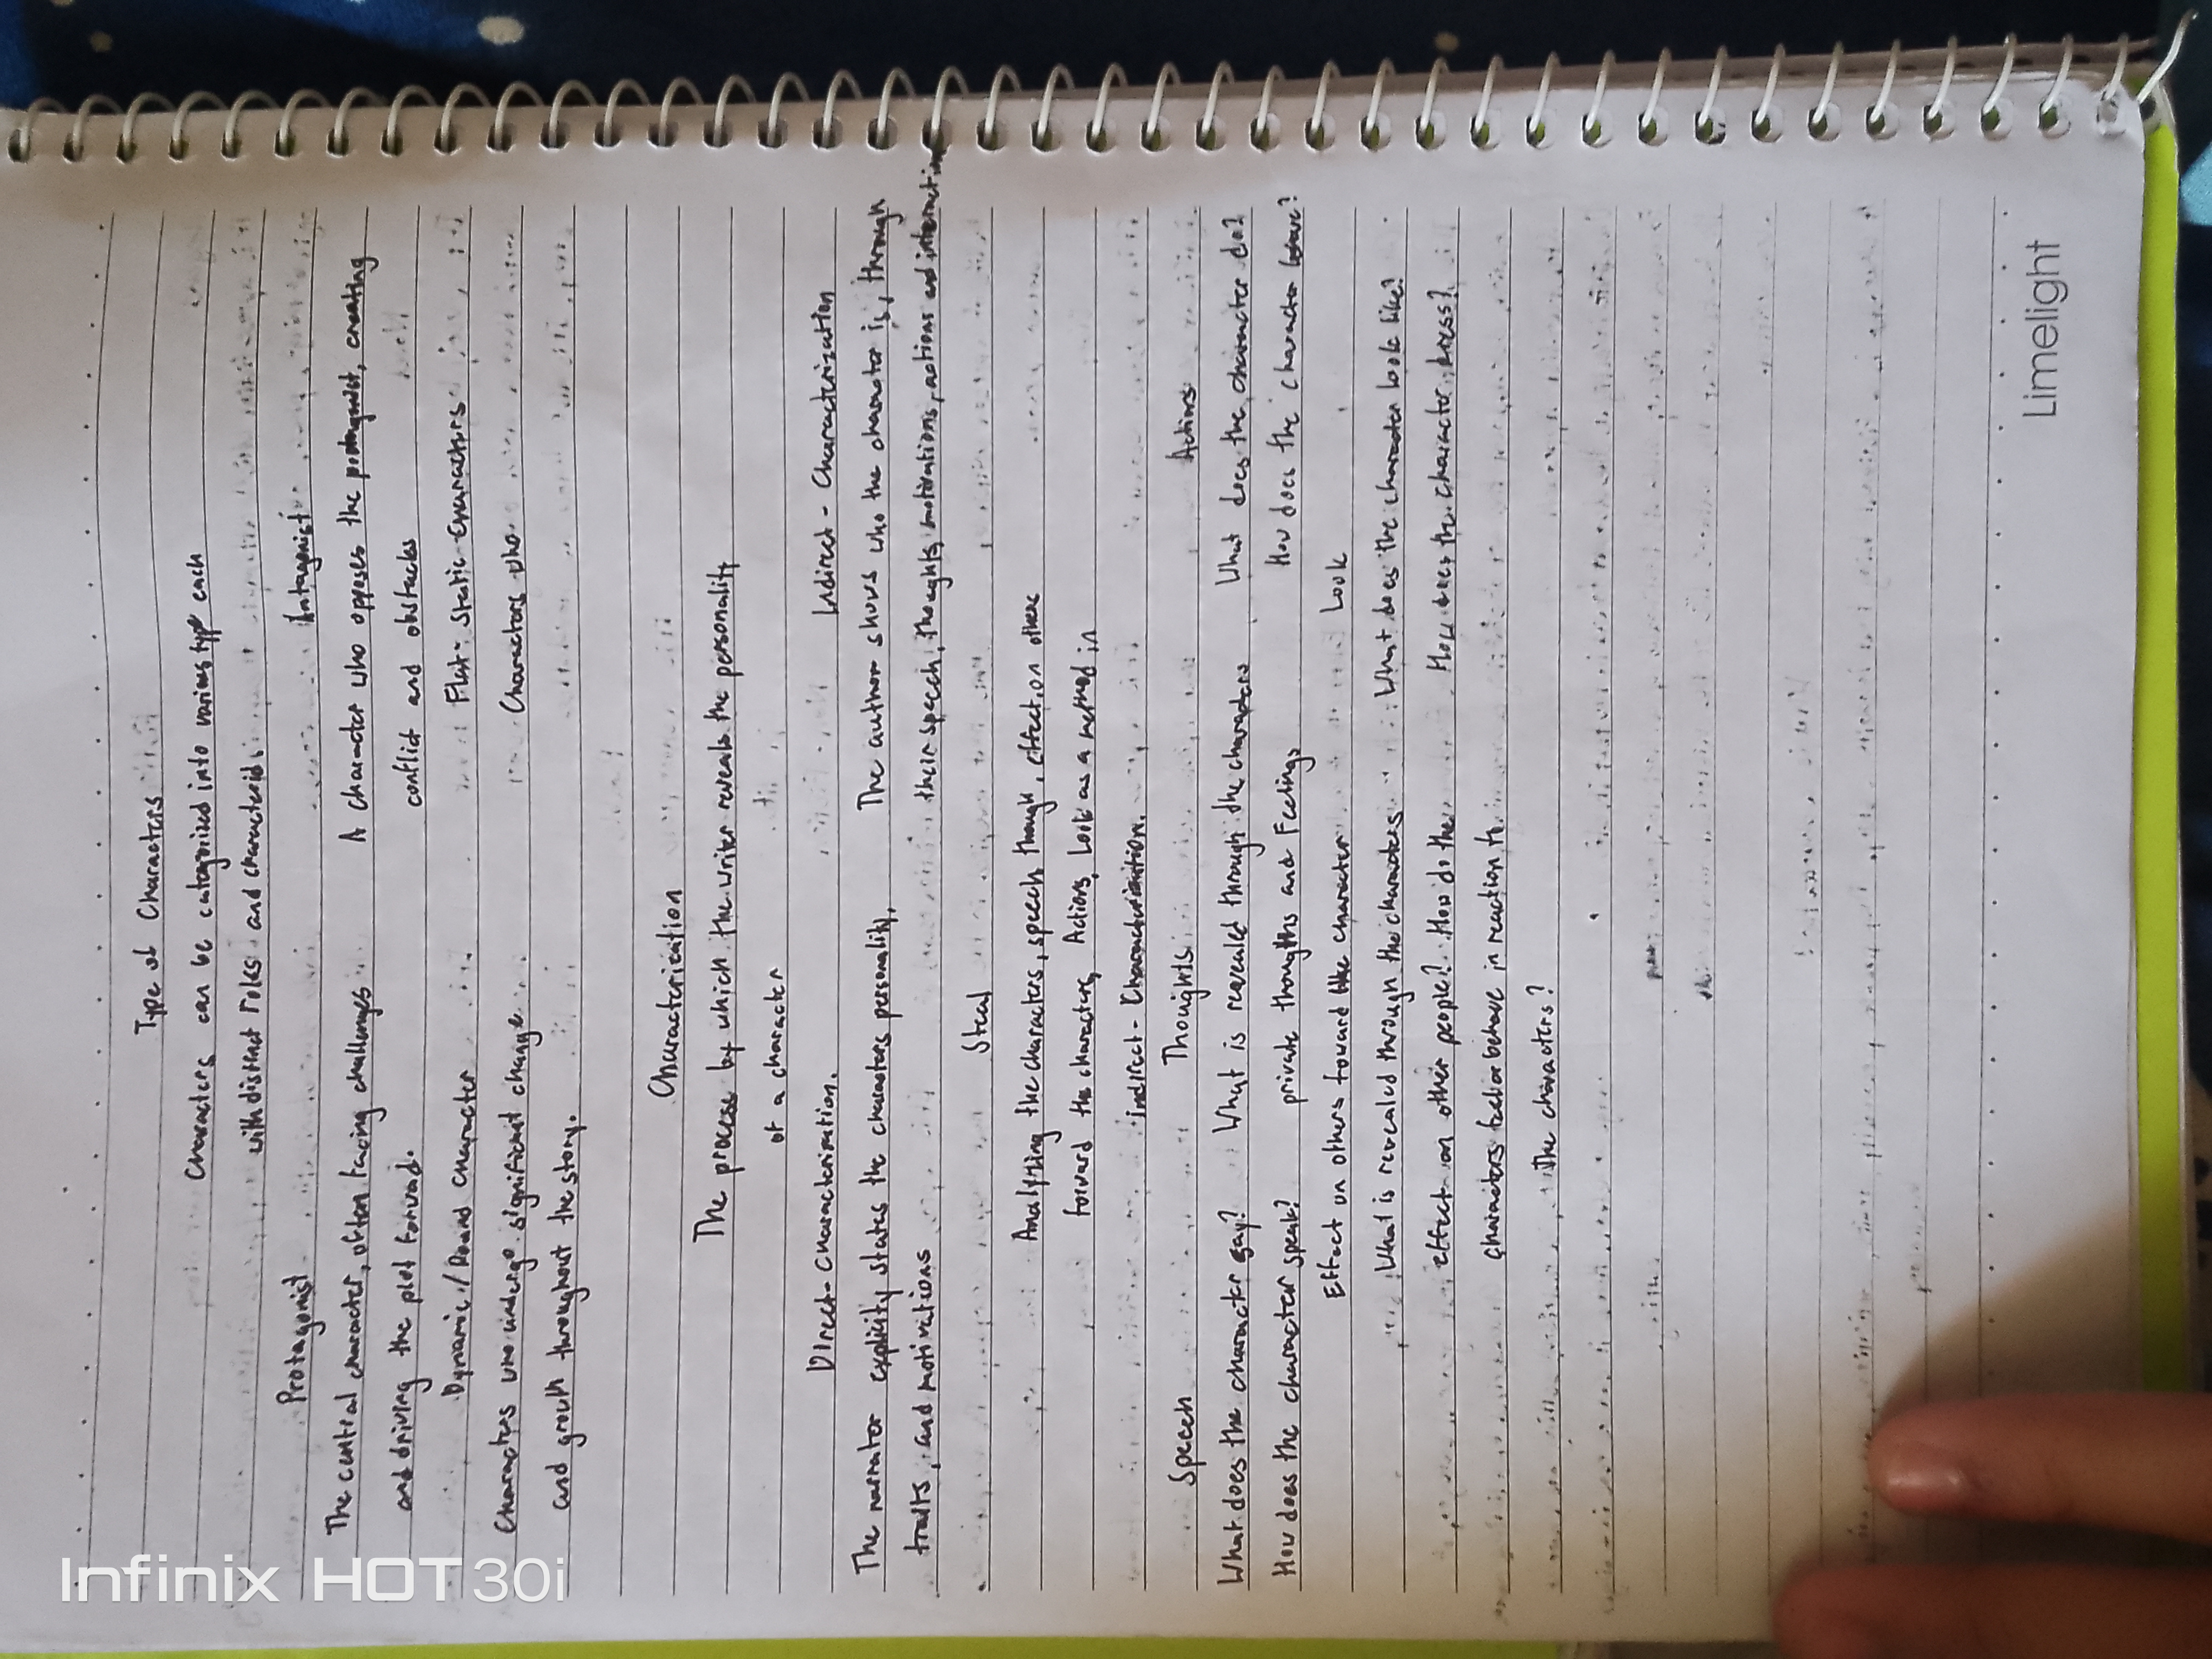 Type of Characters
Characters can be categorized into various type each
with distinct roles and characteristic.
Protagonist
Antagonist
The central character, often facing challenges
A character who opposes the protagonist, creating
and driving the plot forward.
conflict and obstacles
Dynamic/Round character
Flat-Static-Characters
Characters who undergo significant change
Characters who
and growth throughout the story.
Characterization
The process by which the writer reveals the personality
of a character
Direct-Characterization.
Indirect-Characterization
The narrator explicity states the characters personality,
The author shows who the character is, through
traits, and motivations
their speech, thoughts, motivations, actions and interaction
Steal
Analyzing the characters, speech though, effect on others
forward the characters, Actions, Look as a method in
indirect-Characterization.
Speech
Thoughts
Actions
What does the character say?
What is revealed through the characters
What does the character do?
How does the character speak?
private thoughts and Feelings
How does the character behave?
Effect on others toward the character
Look
What is revealed through the characters
What does the character look like?
effect on other people? How do the
How does the character dress?
characters feel or behave in reaction to
the characters?
Limelight
Infinix HOT 30i